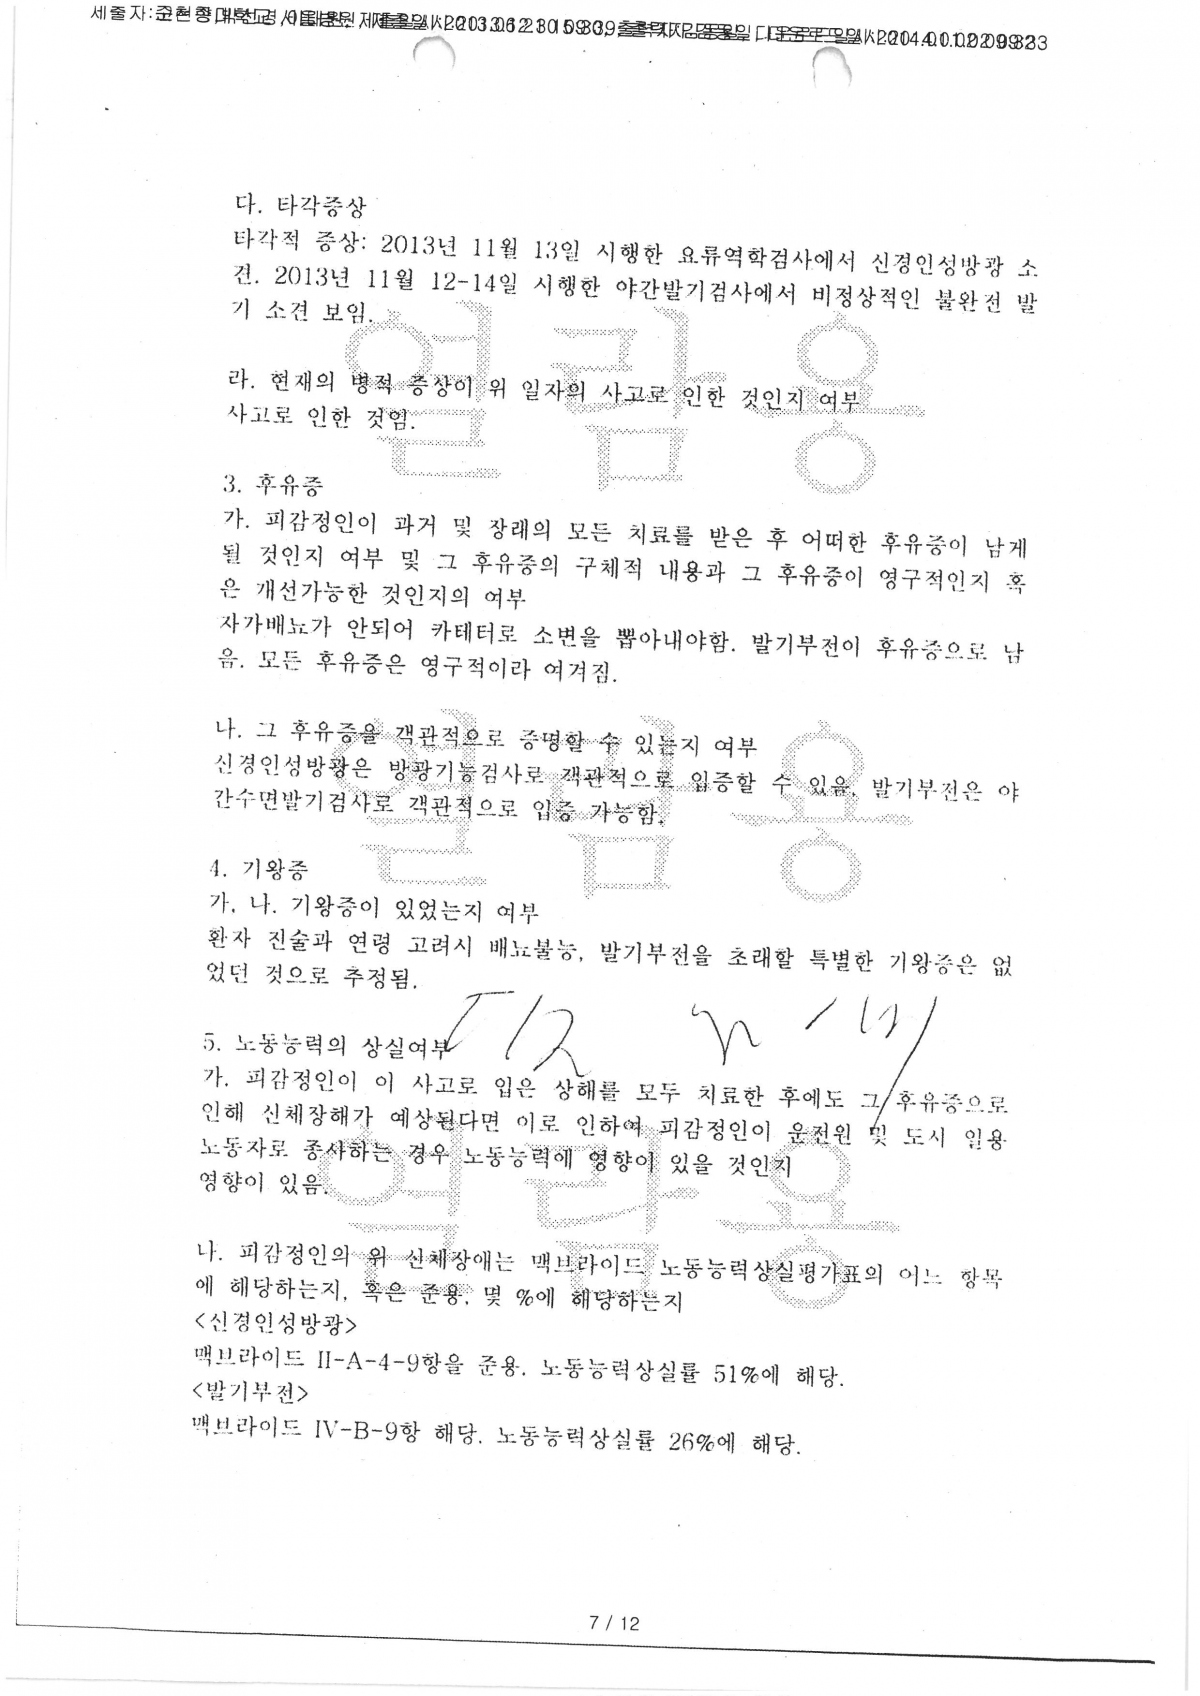 다. 타각증상
타각적 증상: 2013년 11월 13일 시행한 요류역학검사에서 신경인성방광 소
견. 2013년 11월 12-14일 시행한 야간발기검사에서 비정상적인 불완전 발
기 소견 보임.
라. 현재의 병적 증상이 위 일자의 사고로 인한 것인지 여부
사고로 인한 것임.
3. 후유증
가. 피감정인이 과거 및 장래의 모든 치료를 받은 후 어떠한 후유증이 남게
될 것인지 여부 및 그 후유증의 구체적 내용과 그 후유증이 영구적인지 혹
은 개선가능한 것인지의 여부
자가배뇨가 안되어 카테터로 소변을 뽑아내야함. 발기부전이 후유증으로 남
음. 모든 후유증은 영구적이라 여겨짐.
나. 그 후유증을 객관적으로 증명할 수 있는지 여부
신경인성방광은 방광기능검사로 객관적으로 입증할 수 있음. 발기부전은 야
간수면발기검사로 객관적으로 입증 가능함.
4. 기왕증
가, 나. 기왕증이 있었는지 여부
환자 진술과 연령 고려시 배뇨불능, 발기부전을 초래할 특별한 기왕증은 없
었던 것으로 추정됨.
5. 노동능력의 상실여부
가. 피감정인이 이 사고로 입은 상해를 모두 치료한 후에도 그 후유증으로
인해 신체장해가 예상된다면 이로 인하여 피감정인이 운전원 및 도시 일용
노동자로 종사하는 경우 노동능력에 영향이 있을 것인지
영향이 있음.
나. 피감정인의 위 신체장애는 맥브라이드 노동능력상실평가표의 어느 항목
에 해당하는지, 혹은 준용, 몇 %에 해당하는지
<신경인성방광>
맥브라이드 II-A-4-9항을 준용. 노동능력상실률 51%에 해당.
<발기부전>
맥브라이드 IV-B-9항 해당. 노동능력상실률 26%에 해당.
열람용
열람용
열람용
7 / 12